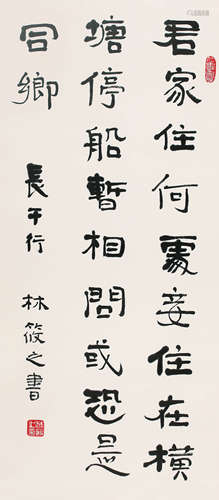 君家住何處妾住在橫
塘停船暫相問或恐是
同鄉
長干行
林筱之書